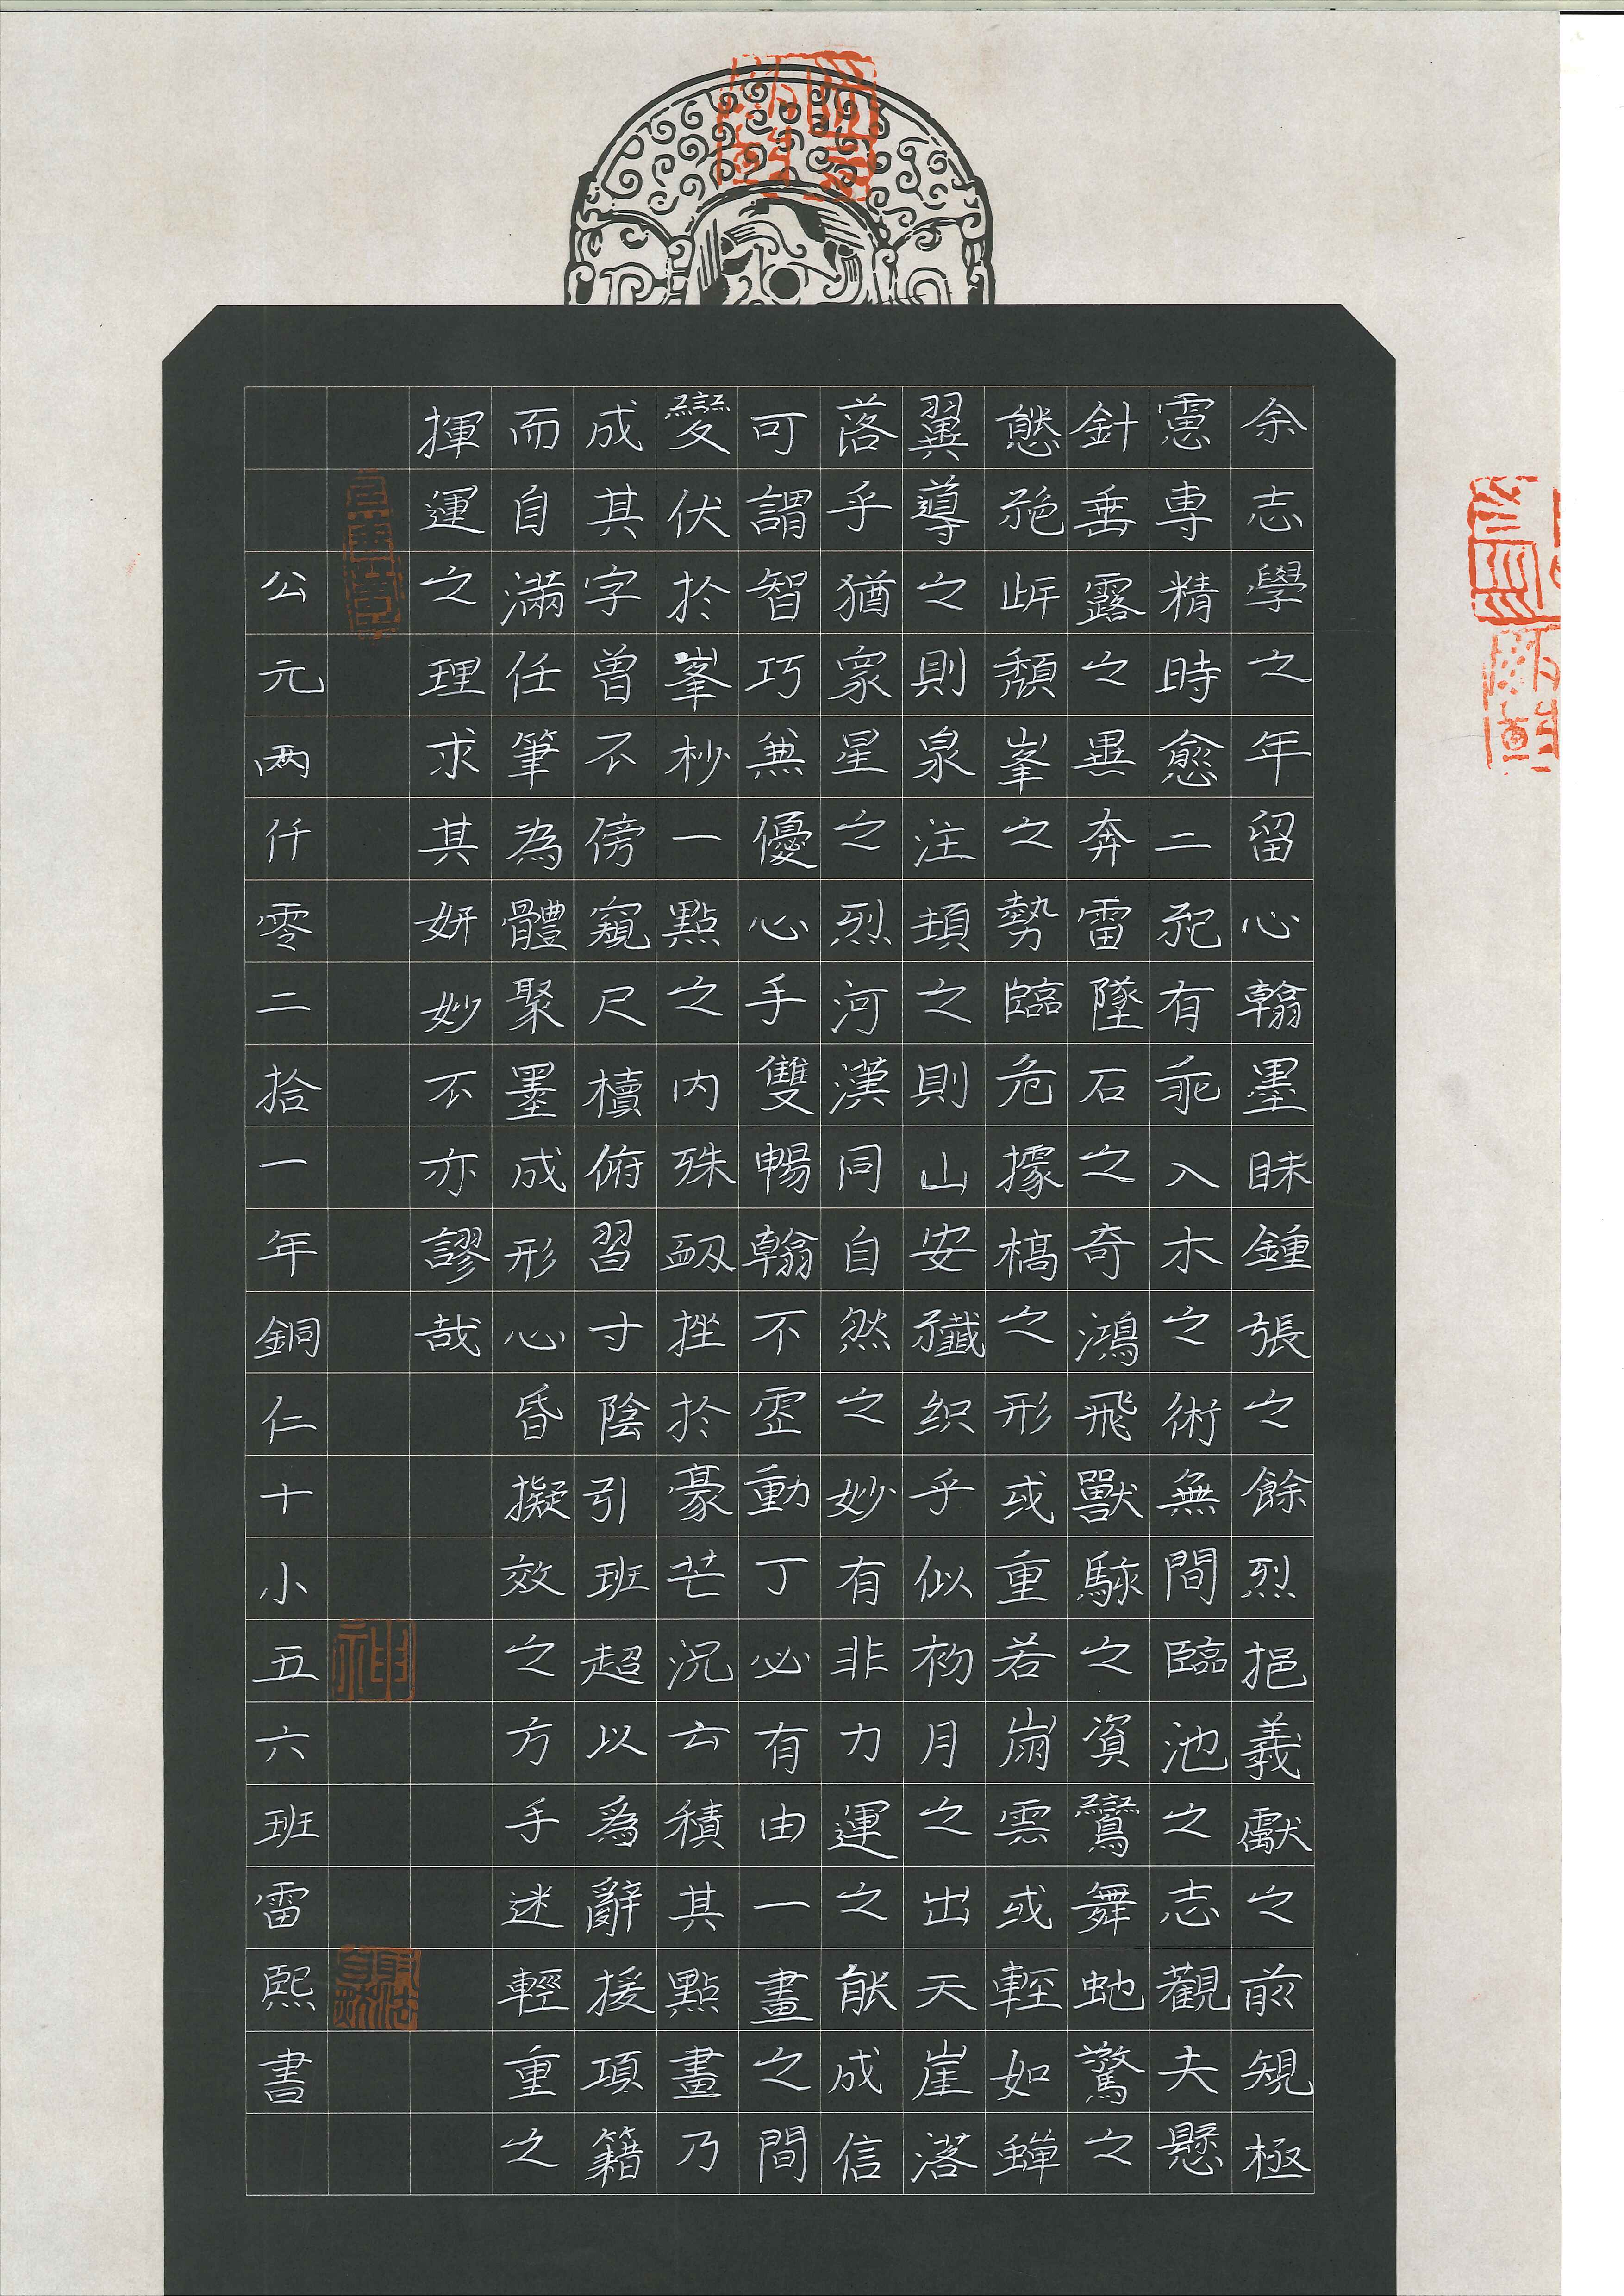 余志學之年留心翰墨眛鍾張之餘烈挹義獻之前規極
慮専精時愈二紀有乖入木之術無間臨池之志觀夫懸
針垂露之異奔雷墜石之奇鴻飛獸駭之資鸞舞虵驚之
態絶岸頹峯之勢臨危據槁之形或重若崩雲或輕如蟬
翼導之則泉注頓之則山安纖织乎似初月之出天崖落
落乎猶衆星之烈河漢同自然之妙有非力運之能成信
可謂智巧兼優心手雙暢翰不虛動丁必有由一畫之間
變伏於峯杪一點之內殊衂挫於豪芒況云積其點畫乃
成其字曾不傍窺尺櫝俯習寸陰引班超以爲辭援項籍
而自滿任筆為體聚墨成形心昏擬效之方手迷輕重之
揮運之理求其妍妙不亦謬哉
公元两仟零二拾一年銅仁十小五六班雷熙書